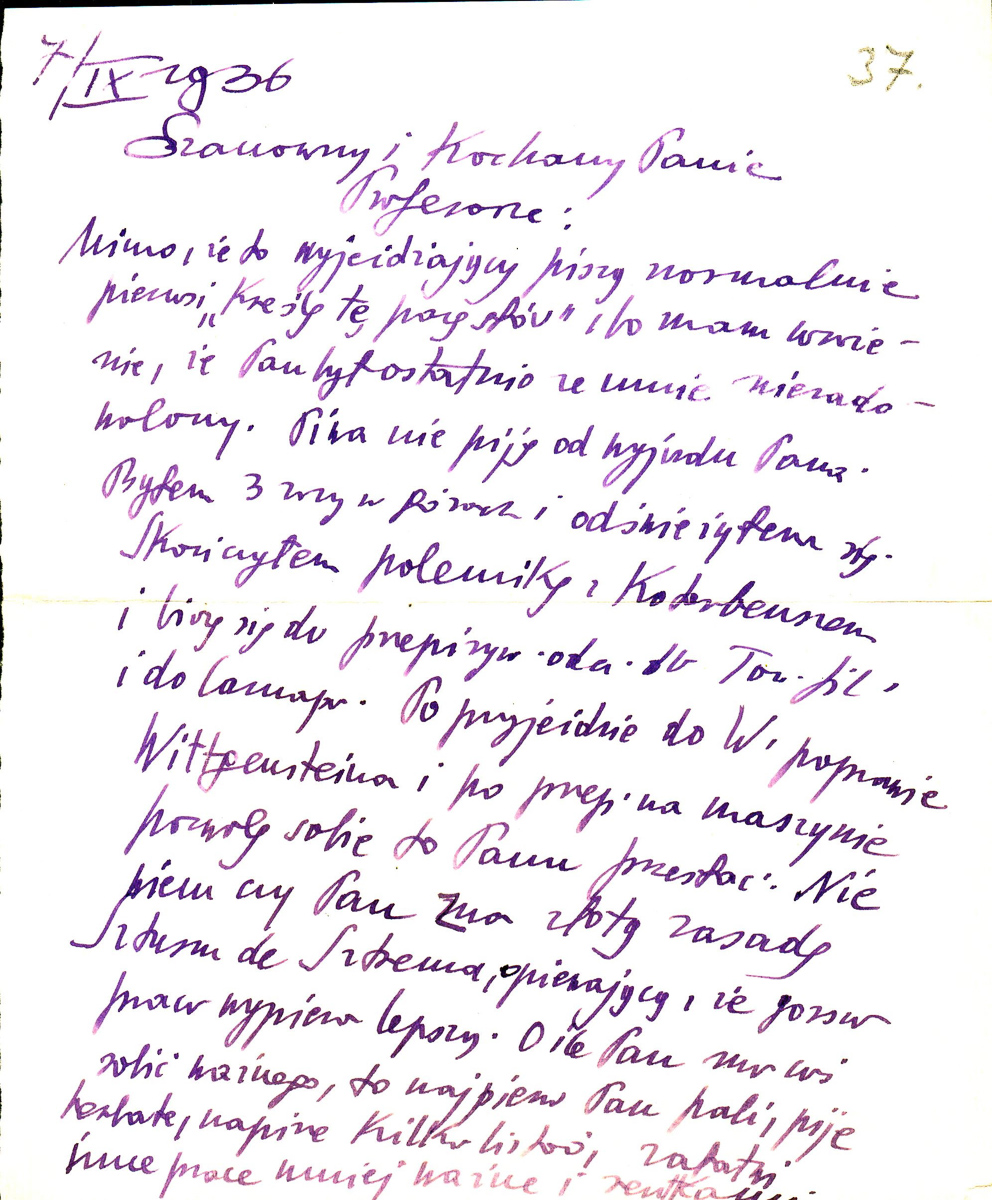 7/IX 1936
37.
Szanowny i Kochany Panie
Profesorze:
Mimo, że to wyjeżdżający piszą normalnie
pierwsi, „Kreślę tę parę słów", bo mam wraże-
nie, że Pan był ostatnio ze mnie niezado-
wolony. Piwa nie piję od wyjazdu Pana.
Byłem 3 razy w górach i odświeżyłem się.
Skończyłem polemikę z Kotarbińskim
i biorę się do przepisyw. odcz. do Tow. fil.
i do . Po przyjeździe do W. poprawię
Wittgensteina i po przep. na maszynie
pozwolę sobie to Panu przesłać. Nie
wiem czy Pan zna złotą zasadę
Sztusm de Sztrema, opiewającą, że gorsza
praca wypiera lepszą. O ile Pan ma coś
robić ważnego, to najpierw Pan pali, pije
herbatę, napisze kilka listów, załatwi
inne prace mniej ważne i